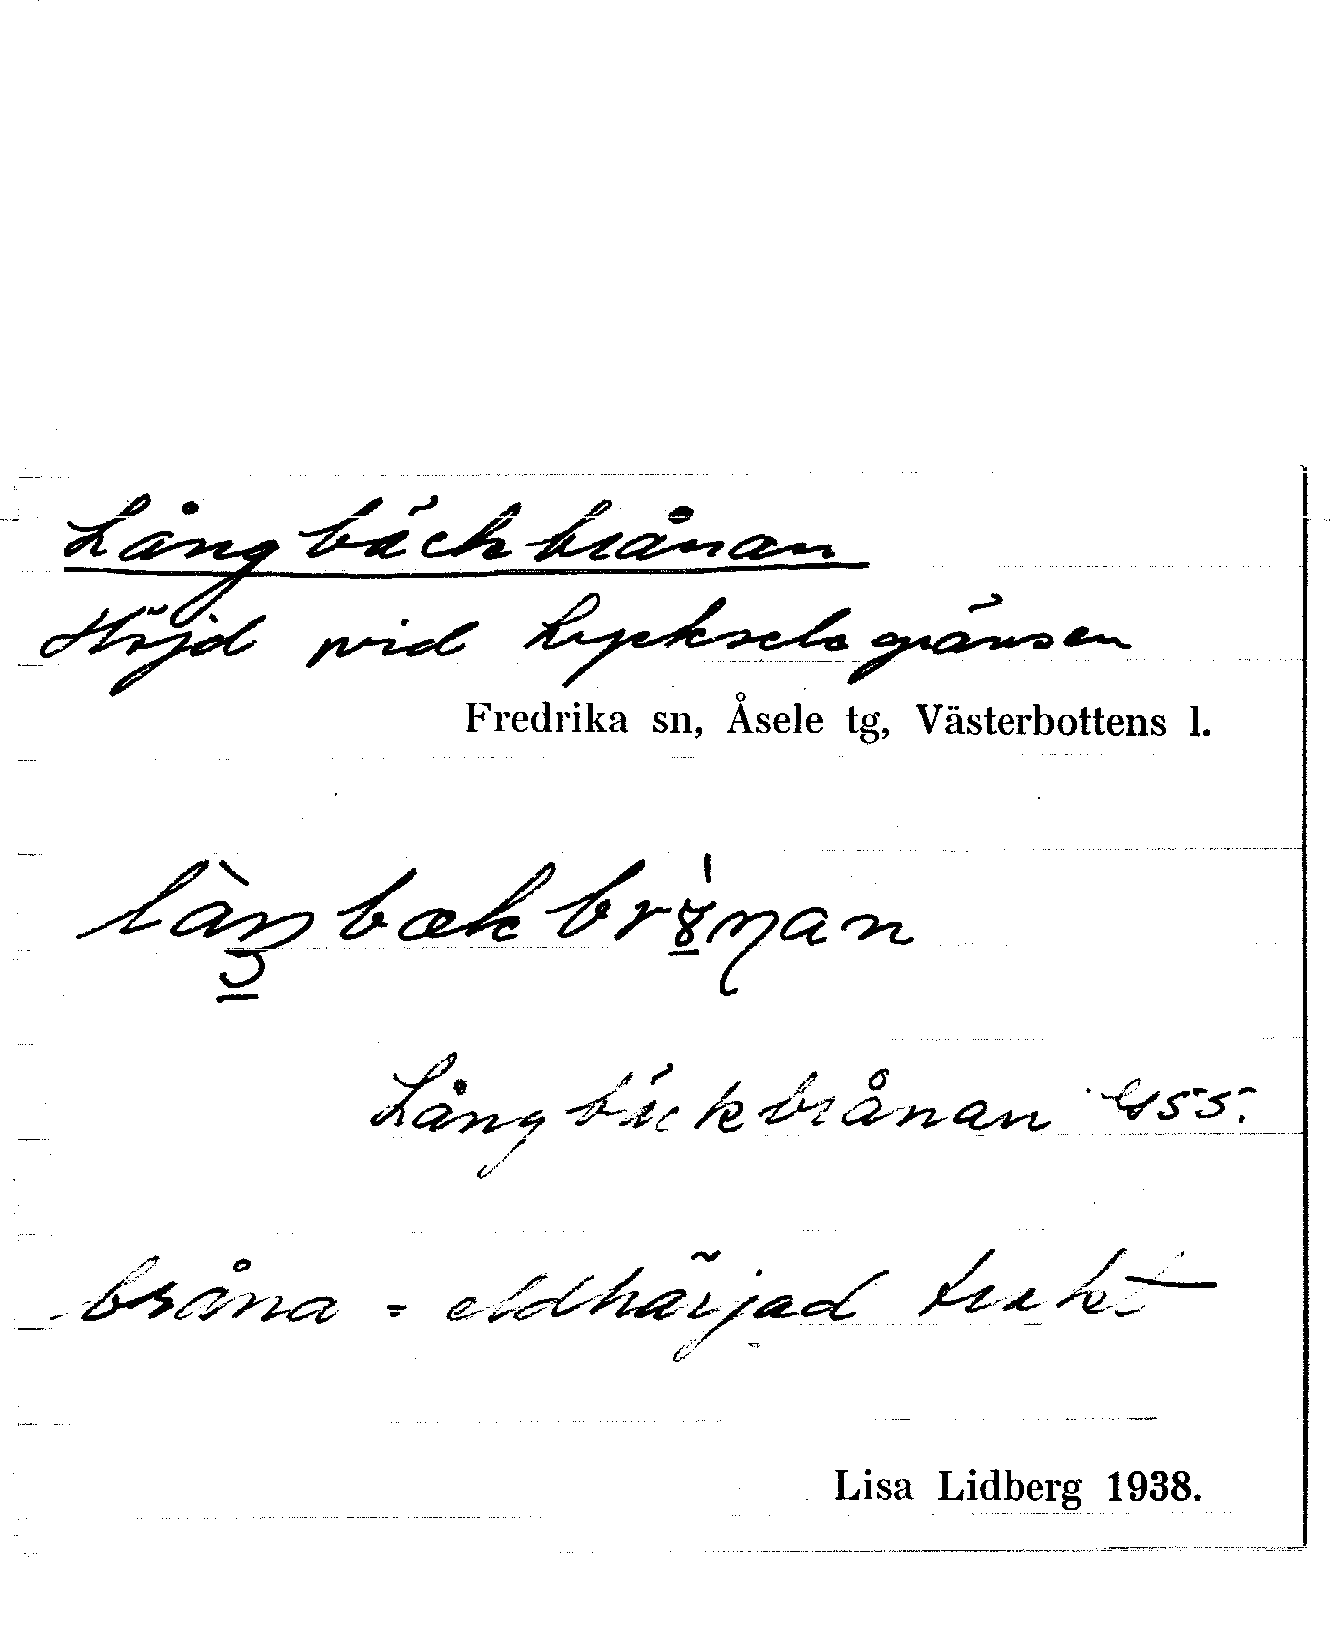 Långbäckbrånan
Höjd vid Lyckselegränsen
Fredrika sn, Åsele tg, Västerbottens l.
Långbäckbrånan G55.
bråna = eldhärjad trakt
Lisa Lidberg 1938.